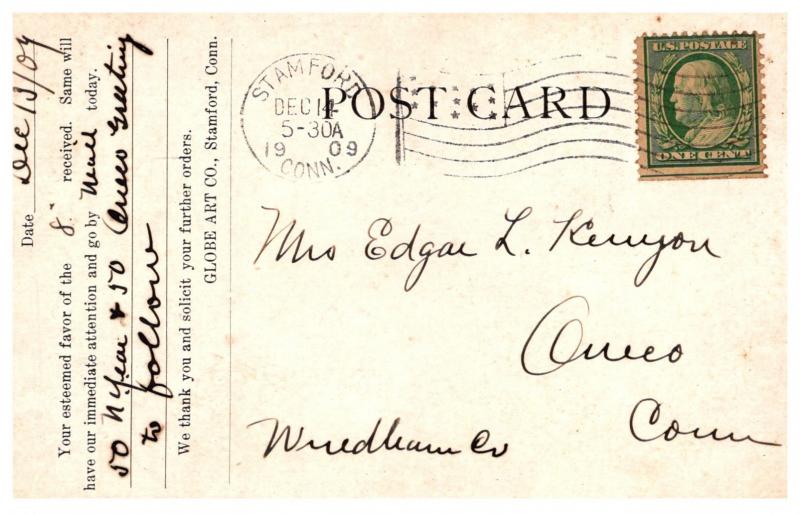 Date Dec 13/09
Your esteemed favor of the 8. received. Same will
have our immediate attention and go by Mail today.
50 N Year & 50 Oneco Greeting
to follow
We thank you and solicit your further orders.
GLOBE ART CO., Stamford, Conn.
POST CARD
STAMFORD
DEC 14
5-30A
1909
CONN.
U.S. POSTAGE
ONE CENT
Mrs Edgar L. Kenyon
Oneco
Conn
Windham Co